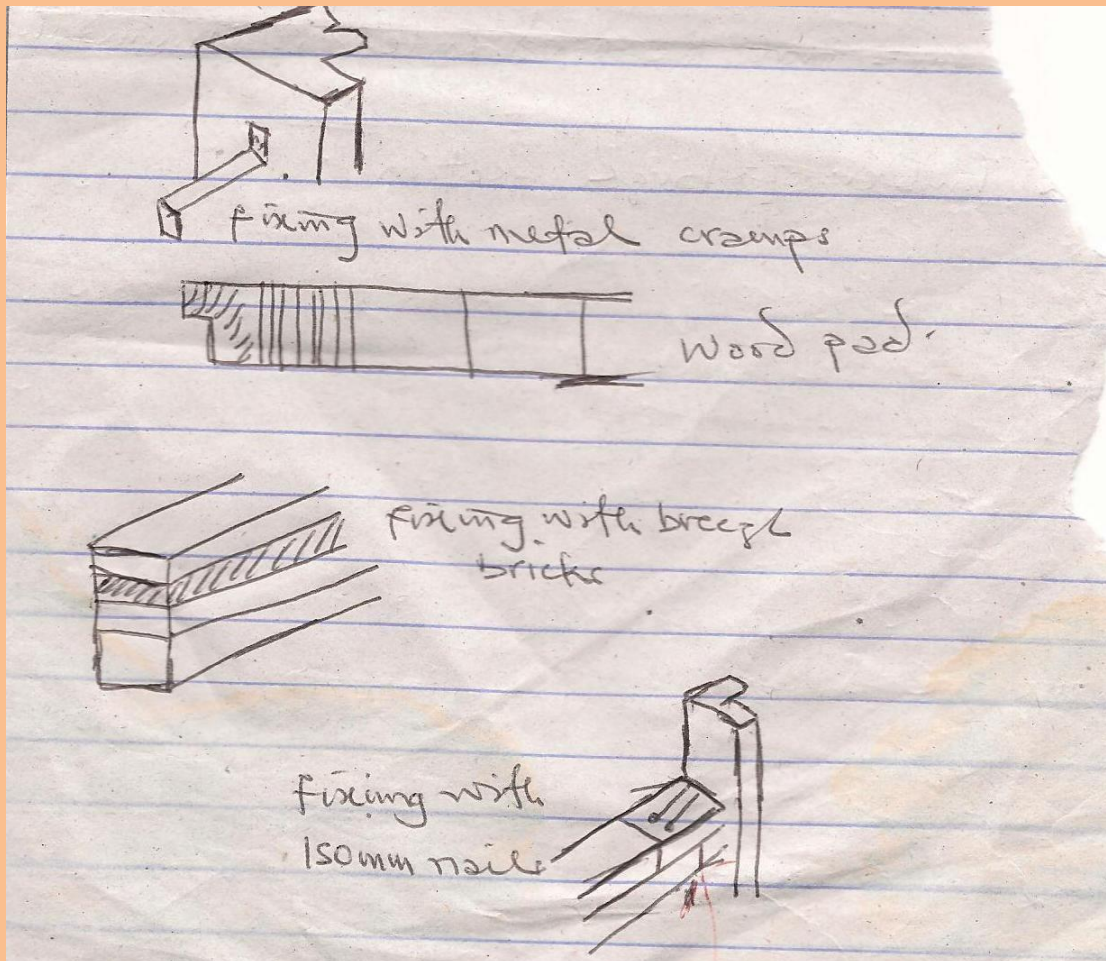 Fixing with metal cramps
Wood pad
Fixing with breeze
bricks
Fixing with
150mm nails